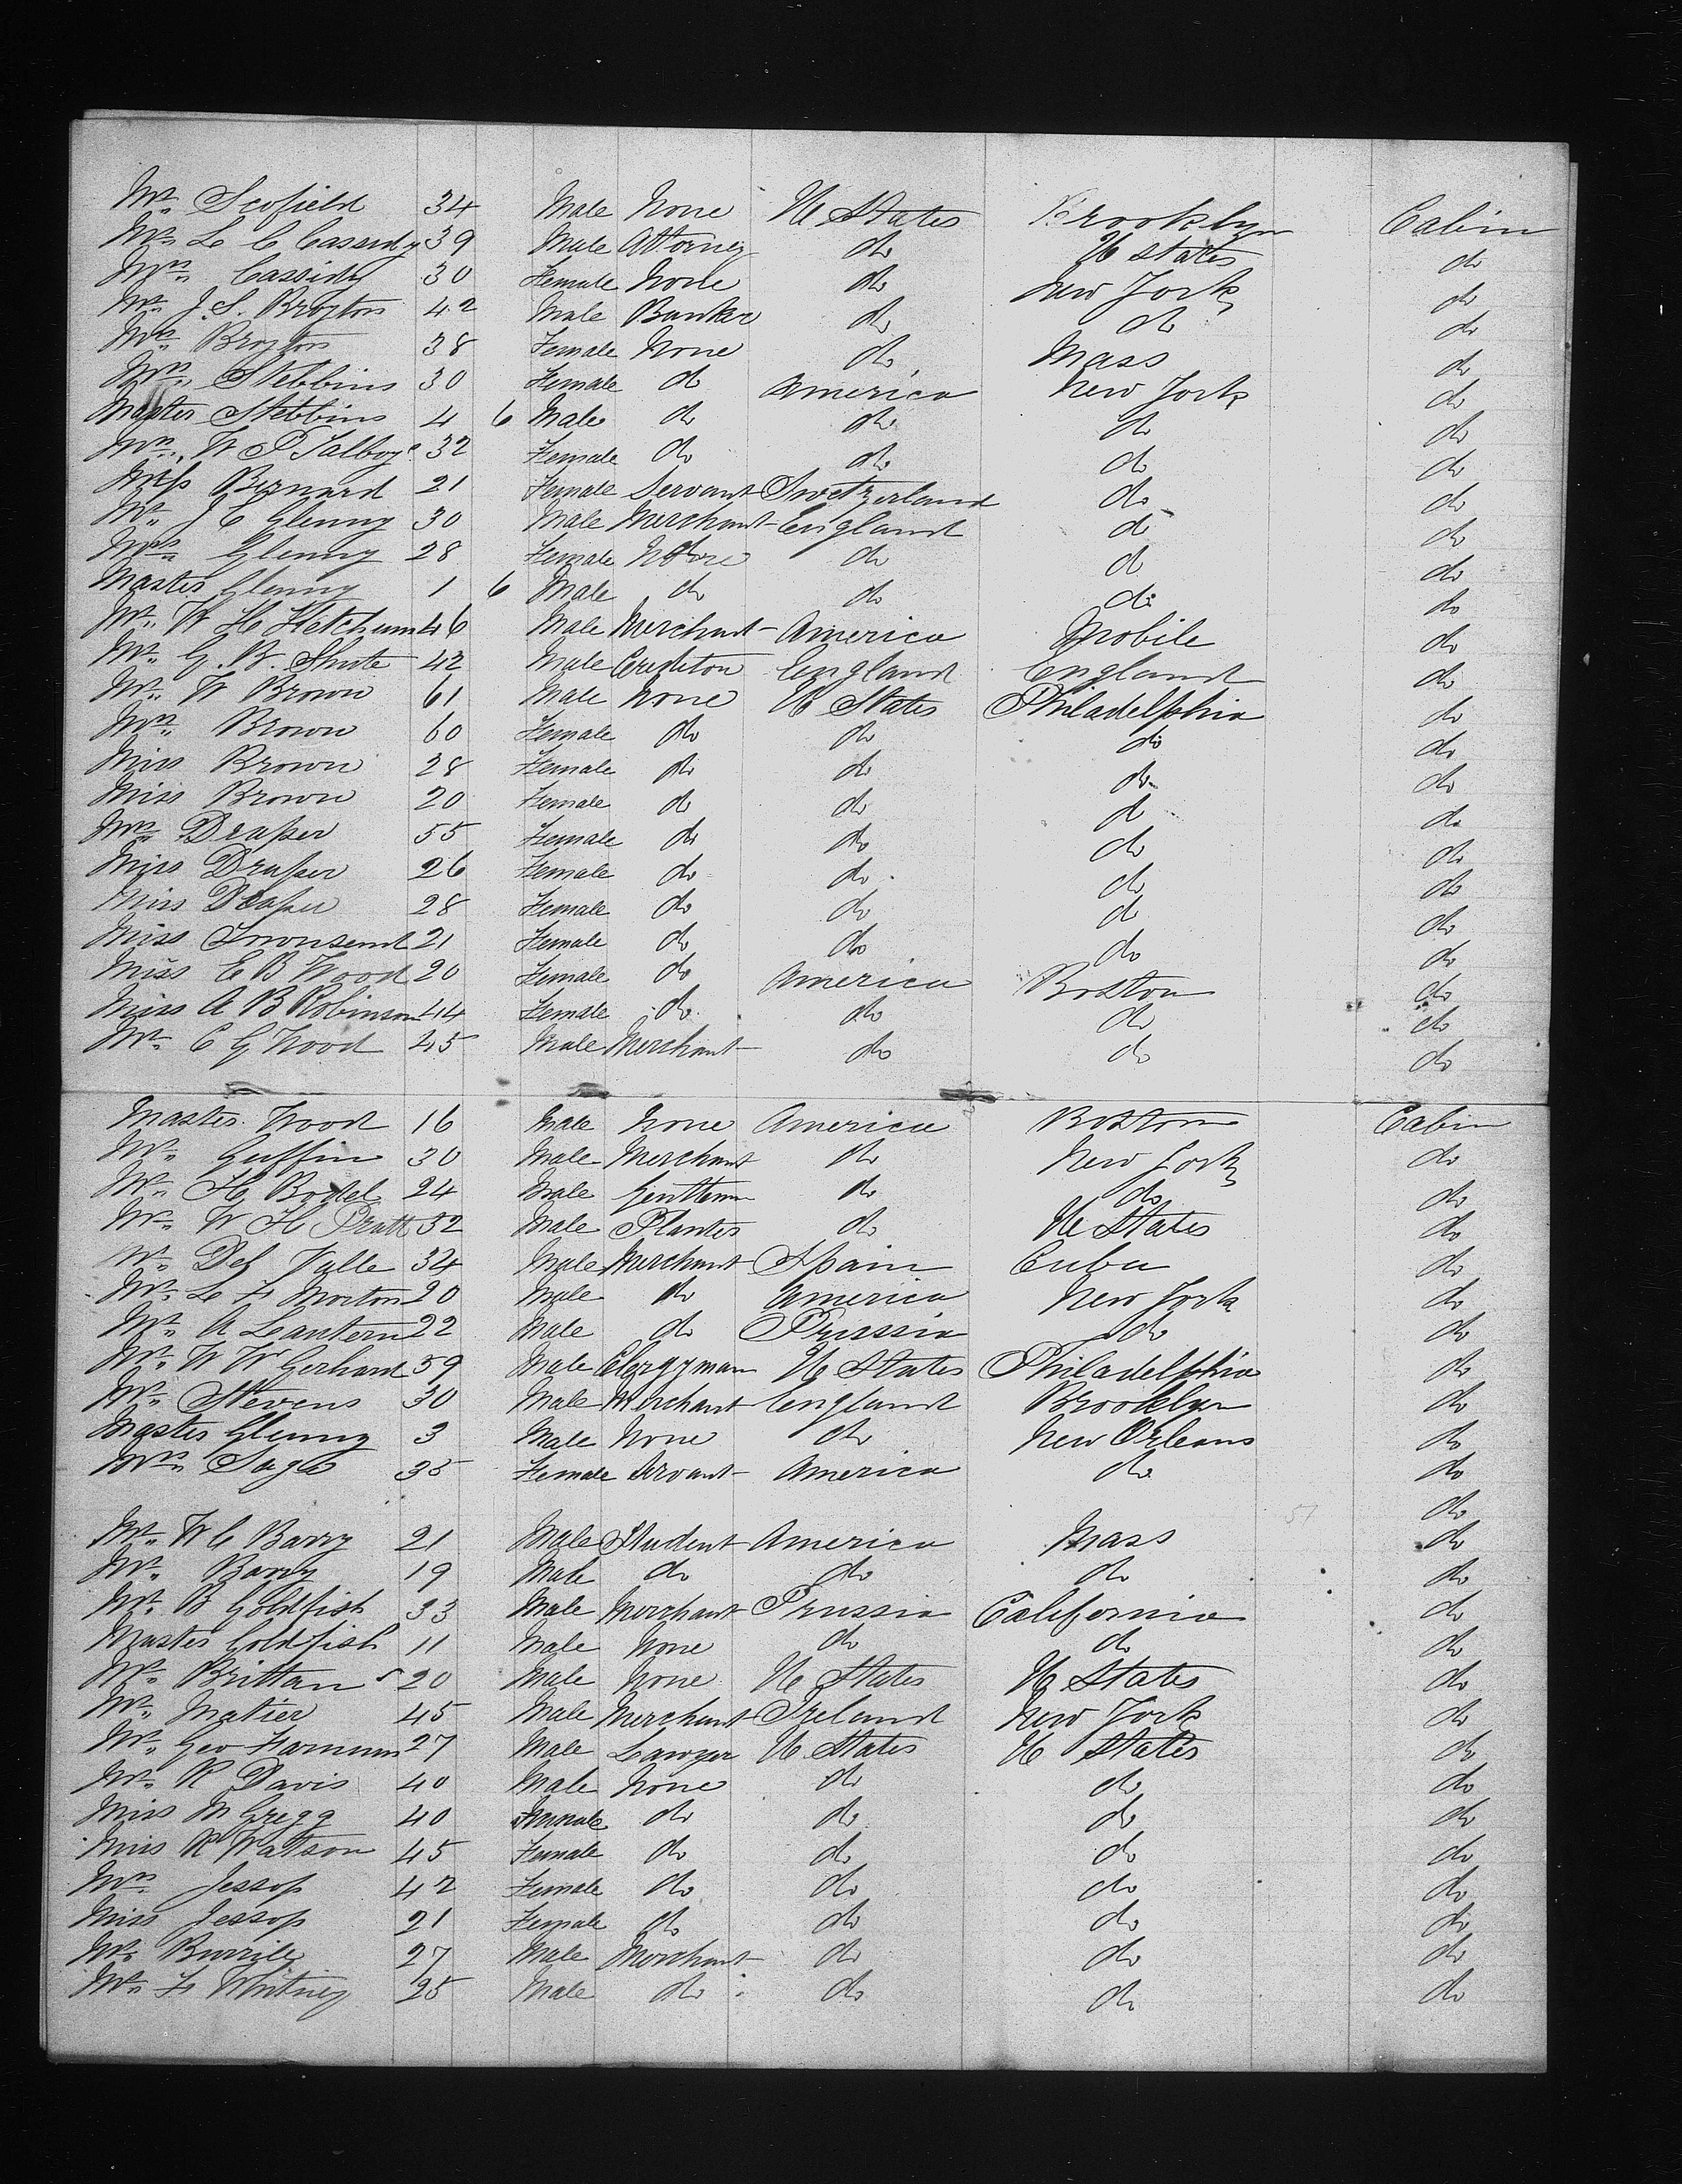 Mr. Scofield 34 Male None U States Brooklyn Cabin
Mr. L C Cassidy 39 Male Attorney do U States do
Mrs. Cassidy 30 Female None do New York do
Mr. J. S. Broyton 42 Male Banker do do do
Mrs. Broyton 38 Female None do Mass do
Mrs. Stebbins 30 Female do America New York do
Master Stebbins 4 6 Male do do do do
Mrs. W P Talboys 32 Female do do do do
Miss Bernard 21 Female Servant Switzerland do do
Mr. J C Glenny 30 Male Merchant England do do
Mrs. Glenny 28 Female None do do do
Master Glenny 1 6 Male do do do do
Mr. W H Ketchum 46 Male Merchant America Mobile do
Mr. G. B. Shute 42 Male Crediton England England do
Mr. W Brown 61 Male None U States Philadelphia do
Mrs. Brown 60 Female do do do do
Miss Brown 28 Female do do do do
Miss Brown 20 Female do do do do
Mrs. Draper 55 Female do do do do
Miss Draper 26 Female do do do do
Miss Draper 28 Female do do do do
Miss Townsend 21 Female do do do do
Miss E B Wood 20 Female do America Boston do
Miss A B Robinson 44 Female do do do do
Mr. C G Wood 45 Male Merchant do do do
Master Wood 16 Male None America Boston Cabin
Mr. Guffin 30 Male Merchant do New York do
Mr. H Bodel 24 Male Gentleman do do do
Mr. W H Pratt 32 Male Planter do U States do
Mr. Del Valle 34 Male Merchant Spain Cuba do
Mr. L F Morton 20 Male do America New York do
Mr. A Leantern 22 Male do Prussia do do
Mr. W W Gerhard 59 Male Clergyman U States Philadelphia do
Mr. Stevens 30 Male Merchant England Brooklyn do
Master Glenny 3 Male None do New Orleans do
Mrs. Sage 35 Female Servant America do do
51 do
Mr. W C Barry 21 Male Student America Mass do
Mr. Barry 19 Male do do do do
Mr. B Goldfish 33 Male Merchant Prussia California do
Master Goldfish 11 Male None do do do
Mr. Brittan 20 Male None U States U States do
Mr. Matier 45 Male Merchant Ireland New York do
Mr. Geo Farnum 27 Male Lawyer U States U States do
Mr. R Davis 40 Male None do do do
Miss M Gregg 40 Female do do do do
Miss R Watson 45 Female do do do do
Mrs. Jessop 42 Female do do do do
Miss Jessop 21 Female do do do do
Mr. Burrile 27 Male Merchant do do do
Mr. F Whitney 25 Male do do do do